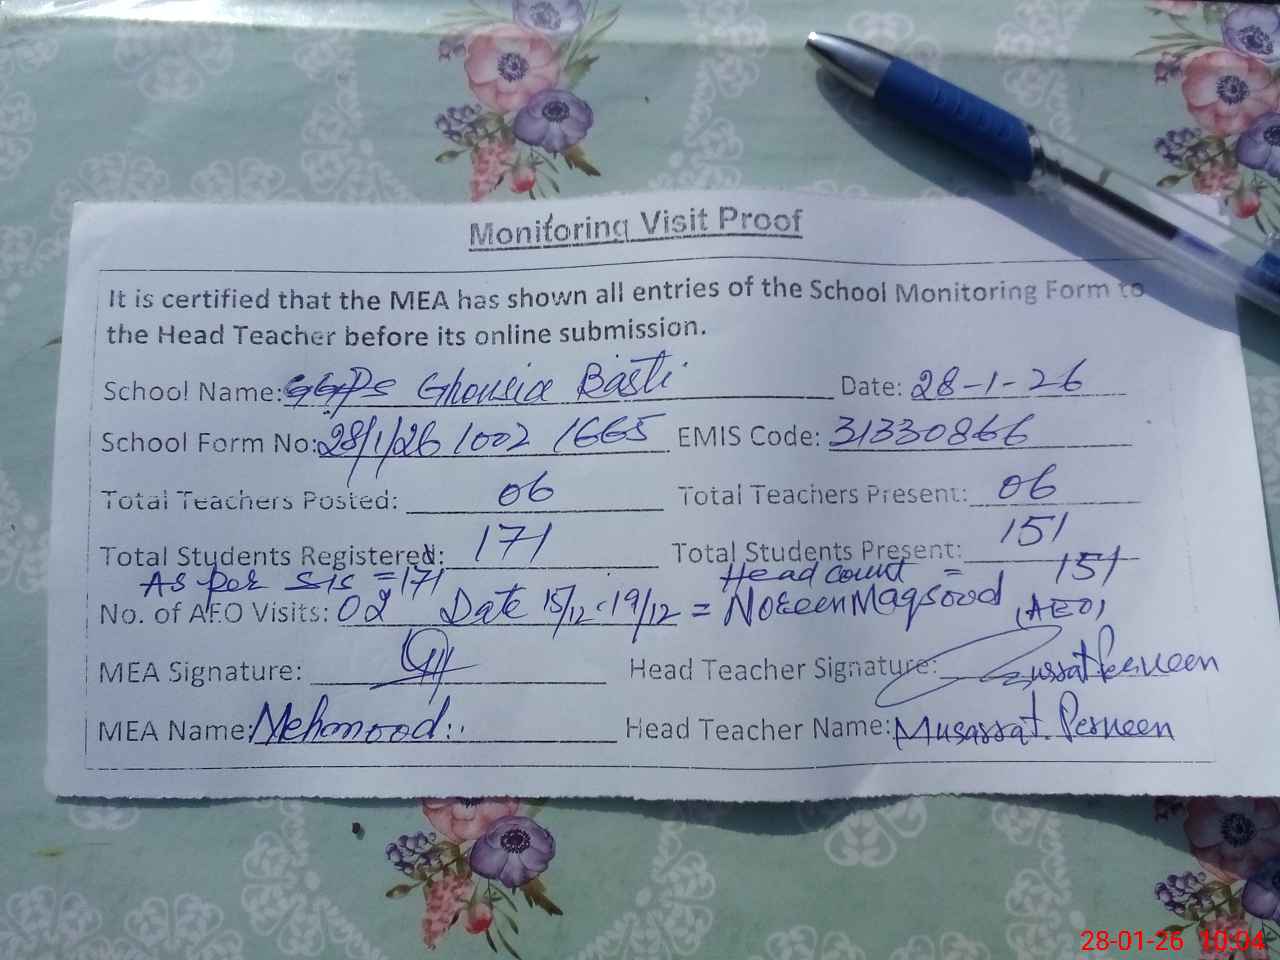 Monitoring Visit Proof
It is certified that the MEA has shown all entries of the School Monitoring Form to
the Head Teacher before its online submission.
School Name: GGPS Ghousia Basti Date: 28-1-26
School Form No: 28/1/26 1002 1665 EMIS Code: 31330866
Total Teachers Posted: 06 Total Teachers Present: 06
Total Students Registered: 171 Total Students Present: 151
As per SIS = 171 Head count = 151
No. of AEO Visits: 02 Date 15/12 < 19/12 = Noreen Maqsood (AEO)
MEA Signature: Head Teacher Signature: Perveen
MEA Name: Mehmood Head Teacher Name: Musarrat. Perveen
28-01-26 10:04